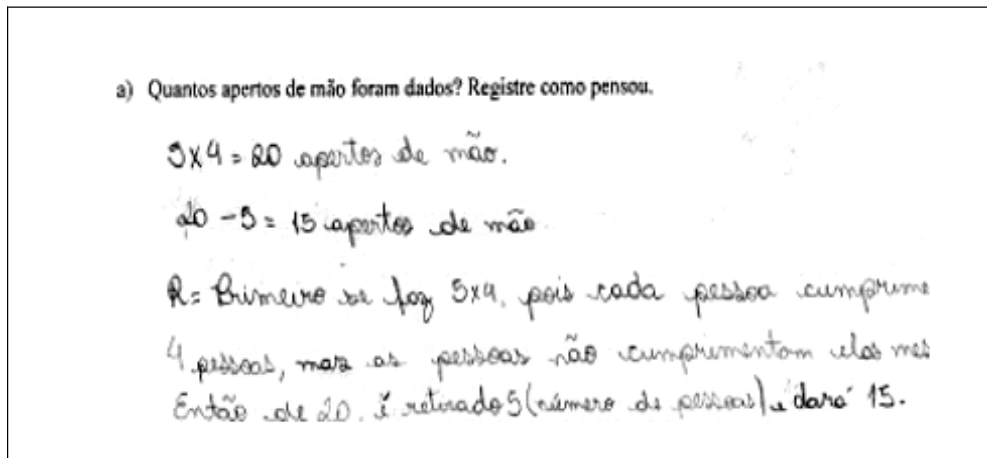 a) Quantos apertos de mão foram dados? Registre como pensou.
5x4 = 20 apertos de mão.
20 - 5 = 15 apertos de mão
R= Primeiro se faz 5x4, pois cada pessoa cumprime
4 pessoas, mas as pessoas não cumprimentam elas mes
Então de 20. é retirado 5 (número de pessoas) e dará 15.